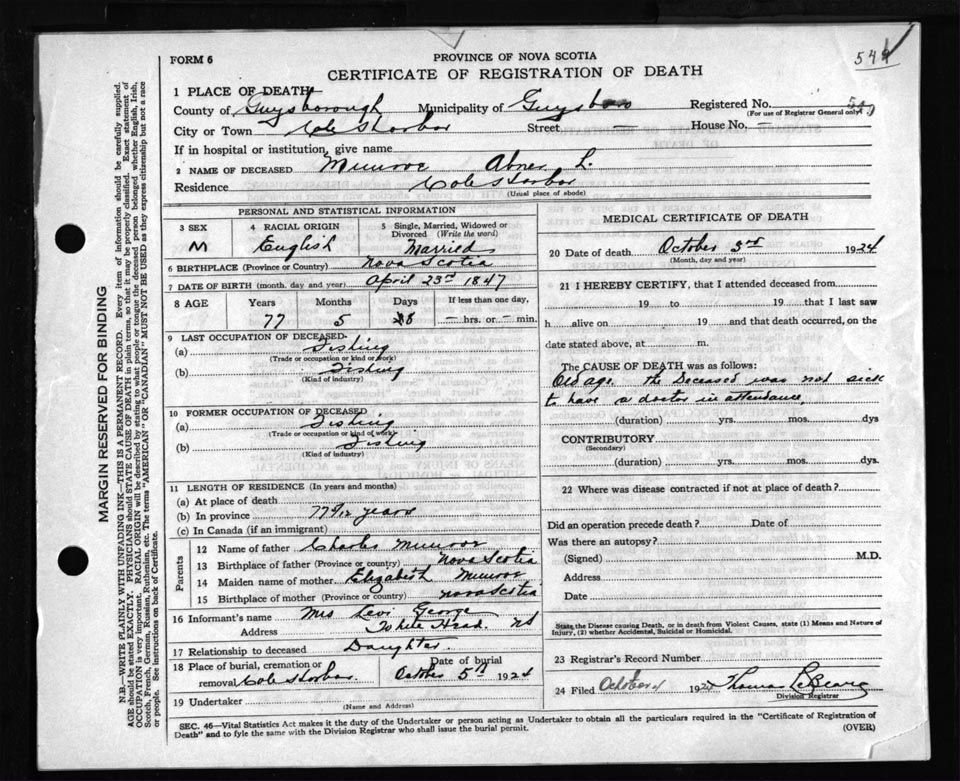 549
FORM 6
PROVINCE OF NOVA SCOTIA
CERTIFICATE OF REGISTRATION OF DEATH
1 PLACE OF DEATH
County of Guysborough Municipality of Guysboro Registered No.
(For use of Registrar General only)
City or Town Cole Harbor Street — House No. —
If in hospital or institution, give name
2 NAME OF DECEASED Munroe Abner L.
Residence Cole Harbor
(Usual place of abode)
PERSONAL AND STATISTICAL INFORMATION
3 SEX 4 RACIAL ORIGIN 5 Single, Married, Widowed or Divorced (Write the word)
M English Married
6 BIRTHPLACE (Province or Country) Nova Scotia
7 DATE OF BIRTH (month, day and year) April 23rd 1847
8 AGE Years Months Days If less than one day,
77 5 — hrs. or — min.
9 LAST OCCUPATION OF DECEASED
(a) Fishing
(Trade or occupation or kind of work)
(b) Fishing
(Kind of industry)
10 FORMER OCCUPATION OF DECEASED
(a) Fishing
(Trade or occupation or kind of work)
(b) Fishing
(Kind of industry)
11 LENGTH OF RESIDENCE (In years and months)
(a) At place of death
(b) In province 77 5/12 years
(c) In Canada (if an immigrant)
Parents
12 Name of father Charles Munroe
13 Birthplace of father (Province or country) Nova Scotia
14 Maiden name of mother Elizabeth Munroe
15 Birthplace of mother (Province or country) Nova Scotia
16 Informant's name Mrs Levi George
Address White Head NS
17 Relationship to deceased Daughter
18 Place of burial, cremation or removal Cole Harbor Date of burial October 5th 1924
19 Undertaker
(Name and Address)
MEDICAL CERTIFICATE OF DEATH
20 Date of death October 3rd 1924
(Month, day and year)
21 I HEREBY CERTIFY, that I attended deceased from
19 to 19 that I last saw
h alive on 19 and that death occurred, on the
date stated above, at m.
The CAUSE OF DEATH was as follows:
Old age. the Deceased was not sick
to have a doctor in attendance
(duration) yrs. mos. dys
CONTRIBUTORY
(Secondary)
(duration) yrs. mos. dys.
22 Where was disease contracted if not at place of death?
Did an operation precede death? Date of
Was there an autopsy?
(Signed) M.D.
Address
Date
State the Disease causing Death, or in death from Violent Causes, state (1) Means and Nature of
Injury, (2) whether Accidental, Suicidal or Homicidal.
23 Registrar's Record Number
24 Filed October 4 1924 Thomas
Division Registrar
SEC. 46—Vital Statistics Act makes it the duty of the Undertaker or person acting as Undertaker to obtain all the particulars required in the "Certificate of Registration of
Death" and to fyle the same with the Division Registrar who shall issue the burial permit.
(OVER)
MARGIN RESERVED FOR BINDING
N.B.—WRITE PLAINLY WITH UNFADING INK—THIS IS A PERMANENT RECORD. Every item of information should be carefully supplied.
AGE should be stated EXACTLY. PHYSICIANS should STATE CAUSE OF DEATH in plain terms, so that it may be properly classified. Exact statement of
OCCUPATION is very important. RACIAL ORIGIN will be described by stating to what people or tongue the deceased person belonged whether English, Irish,
Scotch, French, German, Russian, Ruthenian, etc. The terms "AMERICAN" OR "CANADIAN" MUST NOT BE USED as they express citizenship but not a race
or people. See instructions on back of Certificate.